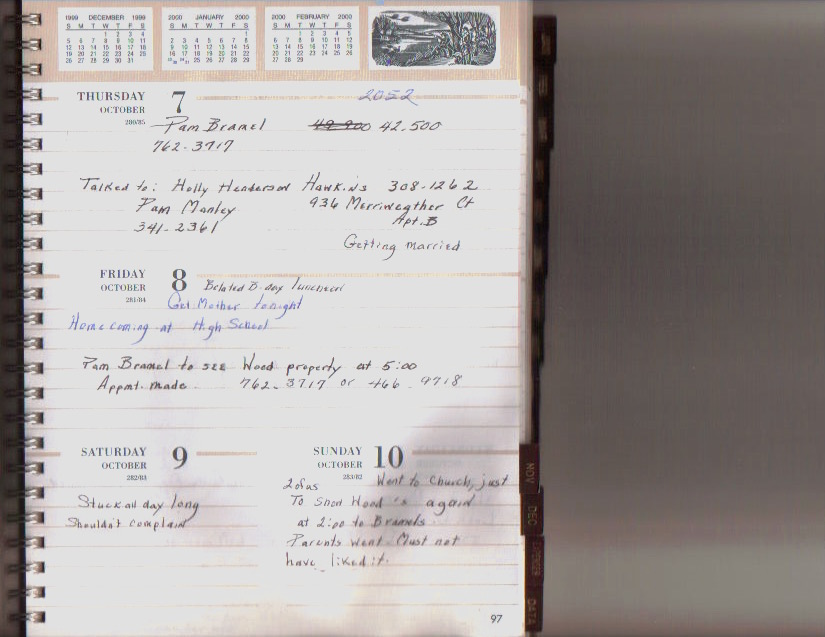 1999 DECEMBER 1999
S M T W T F S
1 2 3 4
5 6 7 8 9 10 11
12 13 14 15 16 17 18
19 20 21 22 23 24 25
26 27 28 29 30 31
2000 JANUARY 2000
S M T W T F S
1
2 3 4 5 6 7 8
9 10 11 12 13 14 15
16 17 18 19 20 21 22
23 30 24 31 25 26 27 28 29
2000 FEBRUARY 2000
S M T W T F S
1 2 3 4 5
6 7 8 9 10 11 12
13 14 15 16 17 18 19
20 21 22 23 24 25 26
27 28 29
THURSDAY 7 2052
OCTOBER
280/85
Pam Bramel 42,500
762-3717
Talked to: Holly Henderson Hawkins 308-1262
Pam Manley 936 Merriweather Ct
341-2361 Apt. B
Getting married
FRIDAY 8 Belated B-day luncheon
OCTOBER
281/84
Get Mother tonight
Homecoming at High School
Pam Bramel to see Wood property at 5:00
Appmt. made. 762-3717 or 466-9718
SATURDAY 9
OCTOBER
282/83
Stuck all day long
Shouldn't complain
SUNDAY 10
OCTOBER
283/82
Went to Church, just
2 of us
To Show Wood's again
at 2:00 to Bramels
Parents went - Must not
have liked it.
97
NOV
DEC
DATA